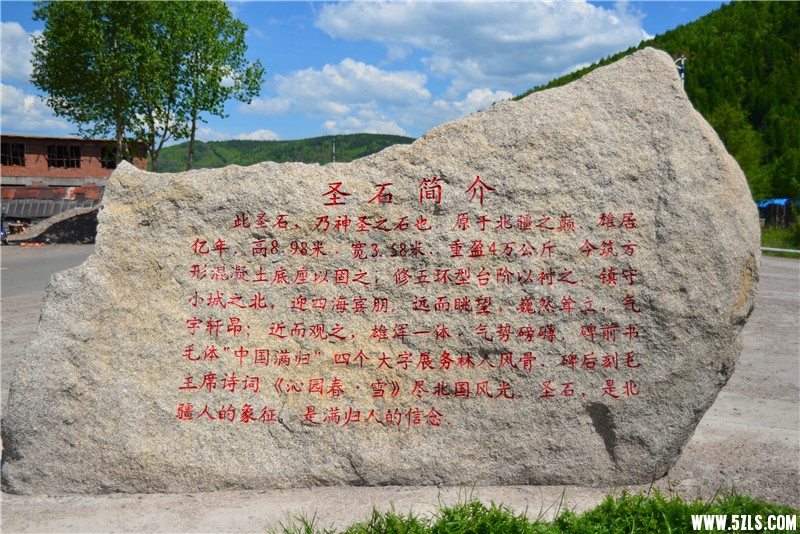 圣石简介
此圣石，乃神圣之石也 原于北疆之巅 雄居
亿年，高8.98米，宽3.58米，重盈4万公斤 今筑万
形混凝土底座以固之，修五环型台阶以衬之，镇守
小城之北，迎四海宾朋，远而眺望，巍然耸立，气
宇轩昂；近而观之，雄浑一体，气势磅礴 碑前书
毛体“中国满归”四个大字展务林人风骨，碑后刻毛
主席诗词《沁园春·雪》尽北国风光，圣石，是北
疆人的象征，是满归人的信念。
WWW.5ZLS.COM